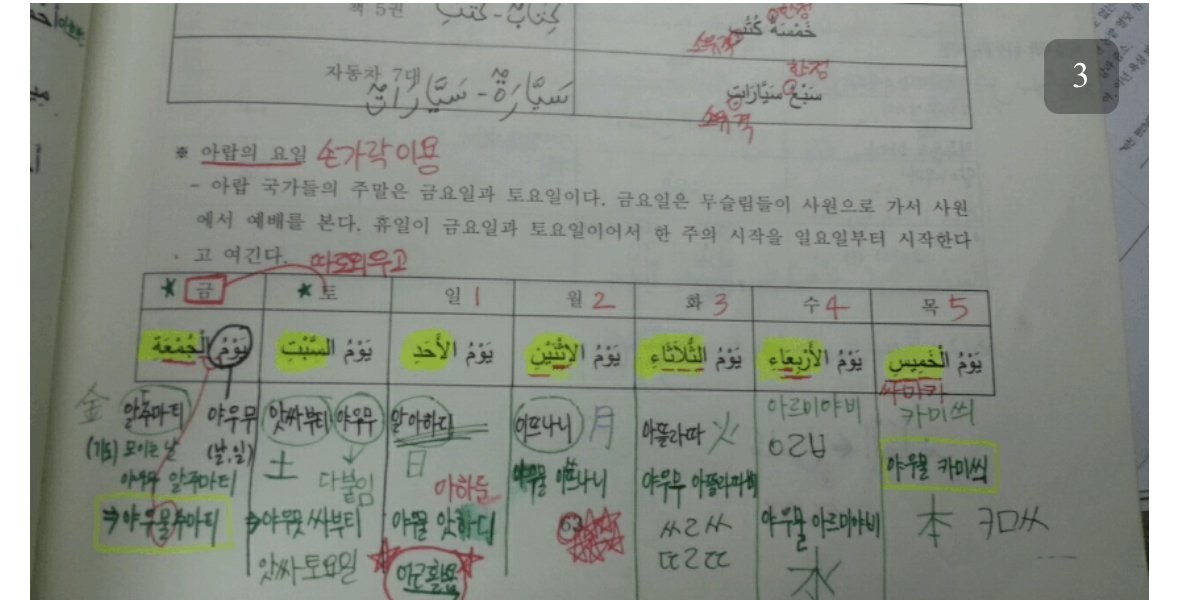 3
책 5권
كِتَابٌ - كُتُبٌ
한정
خَمْسَةُ كُتُبٍ
소유격
자동차 7대
سَيَّارَةٌ - سَيَّارَاتٌ
한정
سَبْعُ سَيَّارَاتٍ
소유격
※ 아랍의 요일 손가락 이용
- 아랍 국가들의 주말은 금요일과 토요일이다. 금요일은 무슬림들이 사원으로 가서 사원
에서 예배를 본다. 휴일이 금요일과 토요일이어서 한 주의 시작을 일요일부터 시작한다
고 여긴다. 따로 외우고
★ 금 ★ 토 일 1 월 2 화 3 수 4 목 5
يَوْمُ الْجُمْعَة
يَوْمُ السَّبْتِ
يَوْمُ الأَحَدِ
يَوْمُ الاِثْنَيْنِ
يَوْمُ الثُّلَاثَاءِ
يَوْمُ الأَرْبِعَاءِ
يَوْمُ الْخَمِيسِ
金 알주마티 야우무
(기도) 모이는 날 (날,일)
야우무 알주마티
⇒ 야우물주마티
앗싸부티 야우무
土 다붙임
⇒ 야우뭇 싸부티
앗싸 토요일
알아하디
日
아하들
야울 앗하디
이쓰나니 月
야우물 이쓰나니
아쓸라싸 火
야우무
ㅆㄹㅆ
ㄸㄹㄸ
아르미야비
야우물 아르미야비
水
카미씨
야우물 카미씨
木 ㅋㅁㅆ